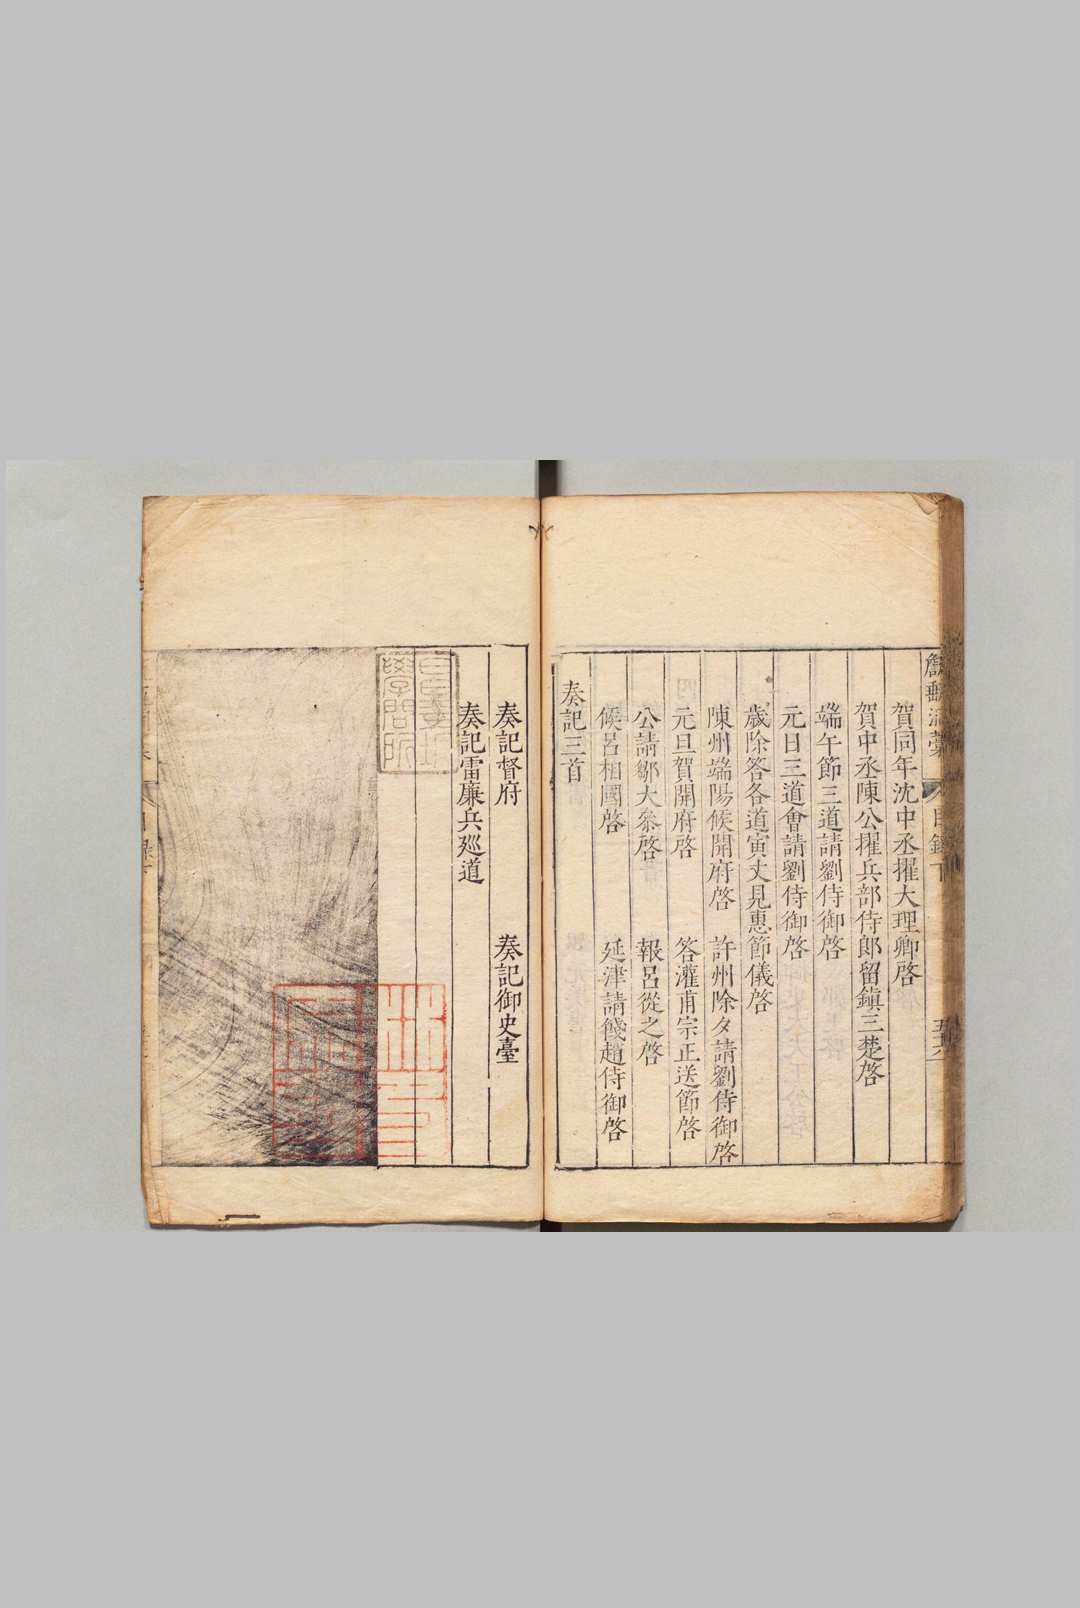 賀同年沈中丞擢大理卿啓
賀中丞陳公擢兵部侍郎留鎮三楚啓
端午節三道請劉侍御啓
元日三道會請劉侍御啓
歲除答各道寅丈見惠節儀啓
陳州端陽候開府啓 許州除夕請劉侍御啓
元旦賀開府啓 答灌甫宗正送節啓
公請鄒大叅啓 報呂從之啓
候呂相國啓 延津請餞趙侍御啓
奏記三首
奏記督府 奏記御史臺
奏記雷廉兵廵道
學問所